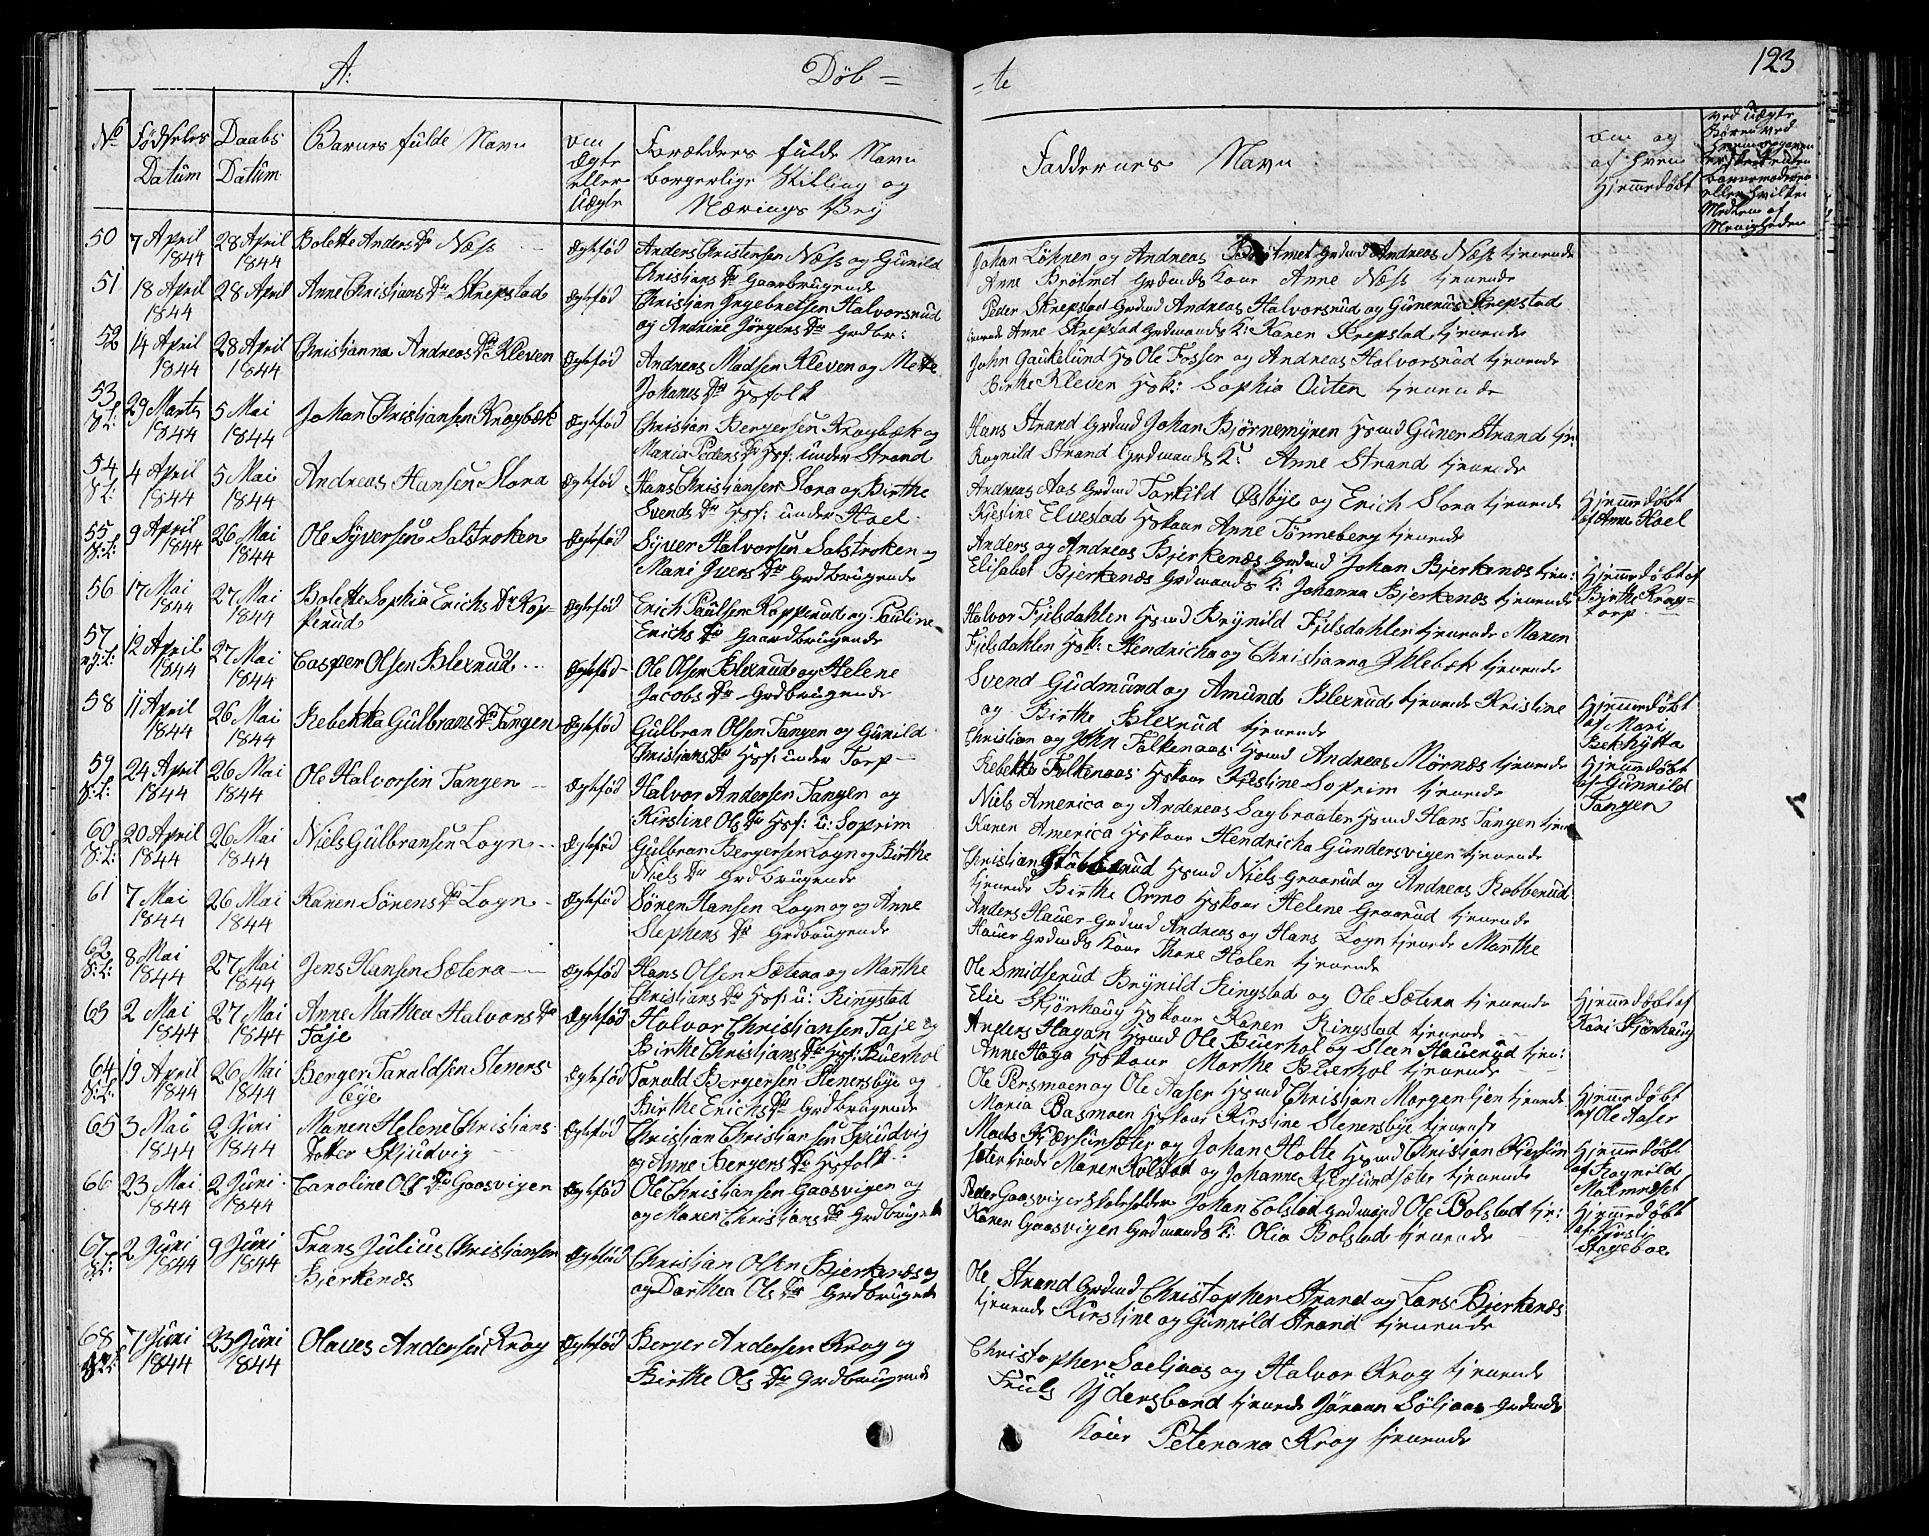 A:
Döb =
= te
123
No
Fødsels Datum
Daabs Datum
Barnes fulde Navn
om Ægte eller Uægte
Forældres fulde Navn
borgerlige Stilling og
Nærings Vej
Faddernes Navn
om og af hvem Hjemmedøbt
50 7 April 1844 28 April 1844 Bolette Anders Dr Næss Ægtefød
Anders Christensen Næss og Gunild
Christians Dr Gaardbrugende
Johan Löknen og Andreas Brötmet Grdmd Andreas Næss tjenende
Anne Brötmet Grdmands Kone Anne Næss tjenende
51 18 April 1844 28 April Anne Christians Dr Skrepstad Ægtefød
Christian Ingebretsen Halvorsrud
og Andrine Jörgens Dr Grdbr:
Peder Skrepstad Grdmd Andreas Halvorsrud og Gunerius Skrepstad
tjenende Anne Skrepstad Grdmands K: Karen Skrepstad tjenende
52 14 April 1844 28 April 1844 Christianna Andreas Dr Kleven Ægtefød
Andreas Madsen Kleven og Mette
Johans Dr Hsfolk
John Gaukelund Hs Ole Fosser og Andreas Halvorsrud tjenende
Birthe Kleven Hsk: Sophia Outen tjenende
53 S:L: 29 Marts 1844 5 Mai 1844 Johan Christiansen Kragbæk Ægtefød
Christian Bergersen Kragbæk og
Maria Peders Dr Hsf: under Strand
Hans Strand Grdmd Johan Bjørnemyren Hsmd Guner Strand tj:
Ragnild Strand Grdmands K: Anne Strand tjenende
54 S:L: 4 April 1844 5 Mai 1844 Andreas Hansen Slora Ægtefød
Hans Christiansen Slora og Birthe
Svends Dr Hsf: under Hoel
Andreas Aas Grdmd Torkild Østbye og Erich Slora tjenende
Kjestine Elvestad Hskone Anne Tønneberg tjenende
Hjemmedøbt
af Anne Hoel
55 S:L: 9 April 1844 26 Mai 1844 Ole Syversen Solstroken Ægtefød
Syver Halvorsen Solstroken og
Mari Ivers Dr Grdbrugende
Anders og Andreas Bjerkenæs Grdmd Johan Bjerkenæs tjen:
Elisabet Bjerkenæs Grdmands K: Johanna Bjerkenæs tjenende
Hjemmedøbt af
Birthe Krog=
torp
56 17 Mai 1844 27 Mai 1844 Bolette Sophia Erichs Dr Kop=
perud Ægtefød
Erich Paulsen Kopperud og Pauline
Erichs Dr Gaardbrugende
Halvor Fjelsdahlen Hsmd Brynild Fjelsdahlen tjenende Maren
Fjelsdahlen Hsk: Hendricha og Christianna Iklebæk tjenende
57 12 April 1844 27 Mai 1844 Casper Olsen Blexrud Ægtefød
Ole Olsen Blexrud og Helene
Jacobs Dr Grdbrugende
Svend Gudmund og Amund Blexrud tjenende Kristine
og Birthe Blexrud tjenende
58 11 April 1844 26 Mai 1844 Rebekka Gulbrans Dr Tangen Ægtefød
Gulbran Olsen Tangen og Gunild
Christians Dr Hsf: under Torp
Christian og John Falkenaas Hsmd Andreas Mörnæs tjenende
Rebekka Falkenaas Hskone Kjestine Soprim tjenende
Hjemmedøbt
af Mari
Bekhytta
59 S:L: 24 April 1844 26 Mai 1844 Ole Halvorsen Tangen Ægtefød
Halvor Andersen Tangen og
Kirstine Ols Dr Hsf: u: Soprim
Niels America og Andreas Sagbraaten Hsmd Hans Tangen tjen
Karen America Hskone Hendricha Gundersvigen tjenende
Hjemmedøbt
af Gunnild
Tangen
60 S:L: 20 April 1844 26 Mai 1844 Niels Gulbransen Logn Ægtefød
Gulbran Bergersen Logn og Birthe
Niels Dr Grdbrugende
Christian Stubberud Hsmd Niels Graarud og Andreas Robberud
tjenende Birthe Ormo Hskone Helene Graarud tjenende
61 7 Mai 1844 26 Mai 1844 Karen Sörens Dr Logn Ægtefød
Sören Hansen Logn og og Anne
Stephens Dr Grdbrugende
Anders Hauer Grdmd Andreas og Hans Logn tjenende Marthe
Hauer Grdmds Kone Thone Holen tjenende
62 S:L: 8 Mai 1844 27 Mai 1844 Jens Hansen Sætera Ægtefød
Hans Olsen Sætera og Marthe
Christians Dr Hsf: u: Ringstad
Ole Smidserud Brynild Ringstad og Ole Sætera tjenende
Elie Skjönhaug Hskone Karen Ringstad tjenende
Hjemmedøbt af
Kari Skjönhaug
63 2 Mai 1844 27 Mai 1844 Anne Mathea Halvors Dr
Taje Ægtefød
Halvor Christiansen Taje og
Birthe Christians Dr Hsf: Buerhol
Anders Hagan Hsmd Ole Buerhol og Steen Hauerud tjen:
Anne Haga Hskone Marthe Buerhol tjenende
64 S:L: 19 April 1844 26 Mai 1844 Berger Taraldsen Steners
bye Ægtefød
Tarald Bergersen Stenersbye og
Birthe Erichs Dr Grdbrugende
Ole Persmoen og Ole Aaser Hsmd Christian Morgentien tjenende
Maria Basmoen Hskone Kirstine Stenersbye tjenende
Hjemmedøbt
af Ole Aaser
65 3 Mai 1844 2 Juni 1844 Maren Helene Christians
Datter Skjudvig Ægtefød
Christian Christiansen Skjudvig
og Anne Bergers Dr Hsfolk
Mads Kjærsundsæter og Johan Holte Hsmd Christian Kjersun
sæter tjende Maren Kolstad og Johanne Kjersundsæter tjenende
Hjemmedøbt
af Ragnild
Malmædset
66 23 Mai 1844 2 Juni 1844 Caroline Ols Dr Gaasvigen Ægtefød
Ole Christiansen Gaasvigen og
og Maren Christians Dr Grdbrugende
Peder Gaasvigen Skoleholder Johan Bolstad Gaardmand Ole Bolstad tj:
Karen Gaasvigen Grdmands K: Olia Bolstad tjenende
Hjemmedøbt
af Kjersti
Stageboe
67 S:L: 2 Juni 1844 9 Juni 1844 Frans Julius Christiansen
Bjerkenæs Ægtefød
Christian Olsen Bjerkenæs og
og Darthea Ols Dr Grdbrugende
Ole Strand Grdmd Christopher Strand og Lars Bjerkenæs
tjenende Kirstine og Gunnild Strand tjenende
68 7 Juni 1844 23 Juni 1844 Olaves Andersen Krog Ægtefød
Berger Andersen Krog og
Birthe Ols Dr Grdbrugende
Christopher Soeljaas og Halvor Krog tjenende
Truls Ydersbond tjenende Jöraan Söljaas Grdmds
Kone Peternana Krog tjenende